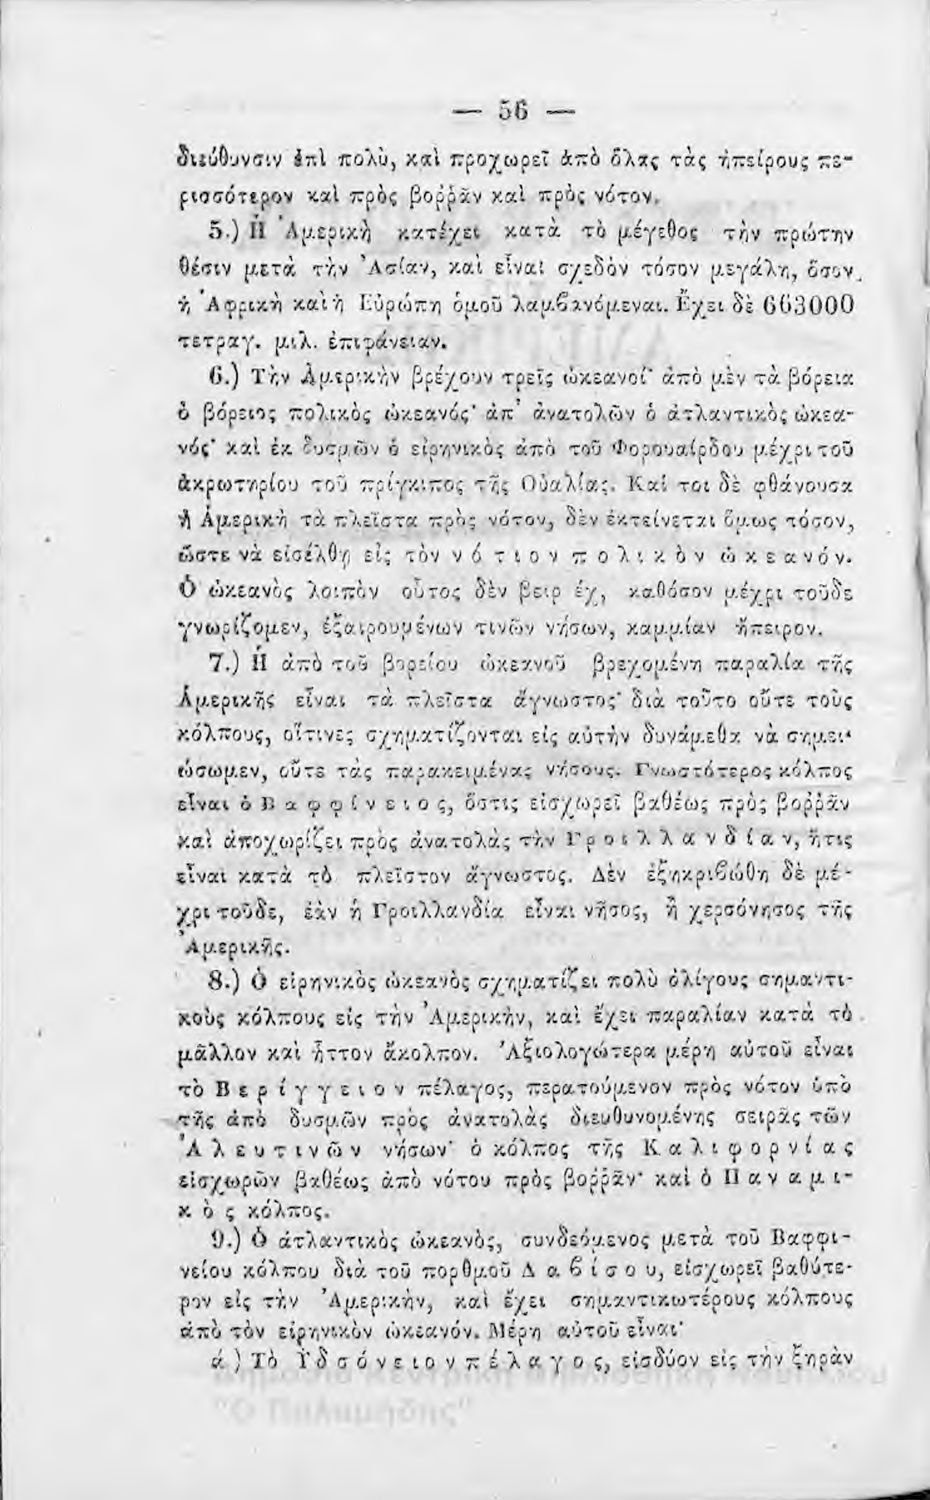 — 56 —
διεύθυνσιν ἐπὶ πολὺ, καὶ προχωρεῖ ἀπὸ ὅλας τὰς ἠπείρους πε-
ρισσότερον καὶ πρὸς βοῤῥᾶν καὶ πρὸς νότον.
5.) Ἡ Ἀμερικὴ κατέχει κατὰ τὸ μέγεθος τὴν πρώτην
θέσιν μετὰ τὴν Ἀσίαν, καὶ εἶναι σχεδὸν τόσον μεγάλη, ὅσον
ἡ Ἀφρικὴ καὶ ἡ Εὐρώπη ὁμοῦ λαμβανόμεναι. Ἔχει δὲ 663000
τετραγ. μιλ. ἐπιφάνειαν.
6.) Τὴν Ἀμερικὴν βρέχουν τρεῖς ὠκεανοί· ἀπὸ μὲν τὰ βόρεια
ὁ βόρειος πολικὸς ὠκεανός· ἀπ' ἀνατολῶν ὁ ἀτλαντικὸς ὠκεα-
νός· καὶ ἐκ δυσμῶν ὁ εἰρηνικὸς ἀπὸ τοῦ Φορουαίρδου μέχρι τοῦ
ἀκρωτηρίου τοῦ πρίγκιπος τῆς Οὐαλίας. Καί τοι δὲ φθάνουσα
ἡ Ἀμερικὴ τὰ πλεῖστα πρὸς νότον, δὲν ἐκτείνεται ὅμως τόσον,
ὥστε νὰ εἰσέλθῃ εἰς τὸν νότιον πολικὸν ὠκεανόν.
Ὁ ὠκεανὸς λοιπὸν οὗτος δὲν βρέχει, καθόσον μέχρι τοῦδε
γνωρίζομεν, ἐξαιρουμένων τινῶν νήσων, καμμίαν ἤπειρον.
7.) Ἡ ἀπὸ τοῦ βορείου ὠκεανοῦ βρεχομένη παραλία τῆς
Ἀμερικῆς εἶναι τὰ πλεῖστα ἄγνωστος· διὰ τοῦτο οὔτε τοὺς
κόλπους, οἵτινες σχηματίζονται εἰς αὐτὴν δυνάμεθα νὰ σημει-
ώσωμεν, οὔτε τὰς παρακειμένας νήσους. Γνωστότερος κόλπος
εἶναι ὁ Βαφφίνειος, ὅστις εἰσχωρεῖ βαθέως πρὸς βοῤῥᾶν
καὶ ἀποχωρίζει πρὸς ἀνατολὰς τὴν Γροιλλανδίαν, ἥτις
εἶναι κατὰ τὸ πλεῖστον ἄγνωστος. Δὲν ἐξηκριβώθη δὲ μέ-
χρι τοῦδε, ἐὰν ἡ Γροιλλανδία εἶναι νῆσος, ἢ χερσόνησος τῆς
Ἀμερικῆς.
8.) Ὁ εἰρηνικὸς ὠκεανὸς σχηματίζει πολὺ ὀλίγους σημαντι-
κοὺς κόλπους εἰς τὴν Ἀμερικὴν, καὶ ἔχει παραλίαν κατὰ τὸ
μᾶλλον καὶ ἧττον ἄκολπον. Ἀξιολογώτερα μέρη αὐτοῦ εἶναι
τὸ Βερίγγειον πέλαγος, περατούμενον πρὸς νότον ὑπὸ
τῆς ἀπὸ δυσμῶν πρὸς ἀνατολὰς διευθυνομένης σειρᾶς τῶν
Ἀλευτινῶν νήσων· ὁ κόλπος τῆς Καλιφορνίας
εἰσχωρῶν βαθέως ἀπὸ νότου πρὸς βοῤῥᾶν· καὶ ὁ Παναμι-
κὸς κόλπος.
9.) Ὁ ἀτλαντικὸς ὠκεανὸς, συνδεόμενος μετὰ τοῦ Βαφφι-
νείου κόλπου διὰ τοῦ πορθμοῦ Δαβίσου, εἰσχωρεῖ βαθύτε-
ρον εἰς τὴν Ἀμερικὴν, καὶ ἔχει σημαντικωτέρους κόλπους
ἀπὸ τὸν εἰρηνικὸν ὠκεανόν. Μέρη αὐτοῦ εἶναι·
ά) Τὸ Ὑδσόνειον πέλαγος, εἰσδύον εἰς τὴν ξηρὰν